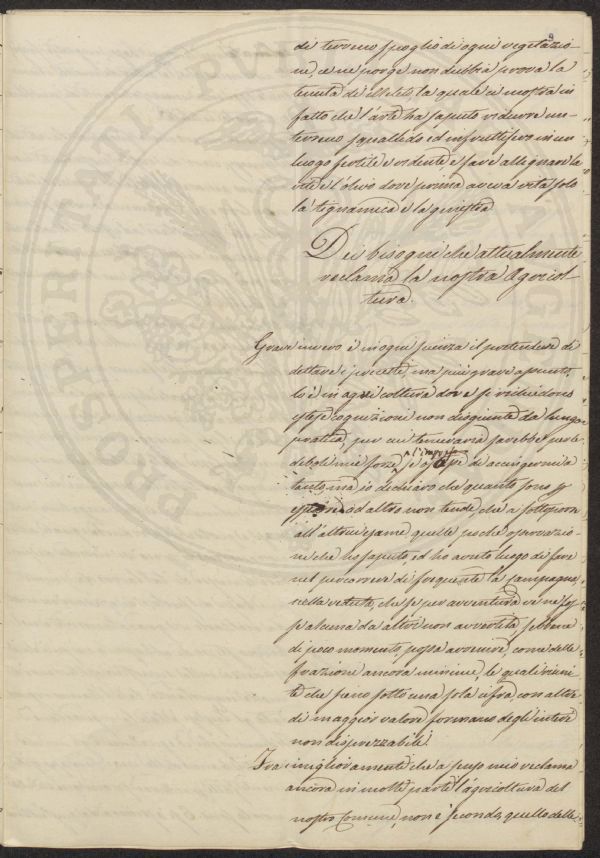 di terreno spoglio di ogni vegetazio-
ne, e ne porge non dubbia prova la
tenuta di la quale ci mostra in
fatto che l'arte ha saputo ridurre un
terreno squallido ed infruttifero in un
luogo fertile e ridente e fare allignare la
vite e l'olivo dove prima aveva vita solo
la tignamica e la ginestra
Dei bisogni che attualmente
reclama la nostra Agricol-
tura.
Grave invero è in ogni scienza il pretendere di
dettare i precetti, ma più grave appunto
lo è in agricoltura dove si richiedono
estese cognizioni non disgiunte da lunga
pratica, per cui temeraria sarebbe per le
deboli mie forze l'impresa se di accingermi a
tanto, ma io dichiaro che quanto sono p
esporre ad altro non tende che a sottoporre
all'altrui esame quelle poche osservazio-
ni che ho saputo, ed ho avuto luogo di fare
nel percorrere di frequente la campagna
nella veduta, che se per avventura ve ne fos
se alcuna da altri non avvertita, sebbene
di poco momento, possa avvenire, come delle
frazioni ancora minime, le quali riuni-
te che sieno sotto una sola cifra con altre
di maggior valore formano degli interi
non disprezzabili.
Fra i miglioramenti che a senso mio reclama
ancora in molte parti l'agricoltura del
nostro Comune, non è secondo, quello delle
PROSPERITATI PVBLICAE